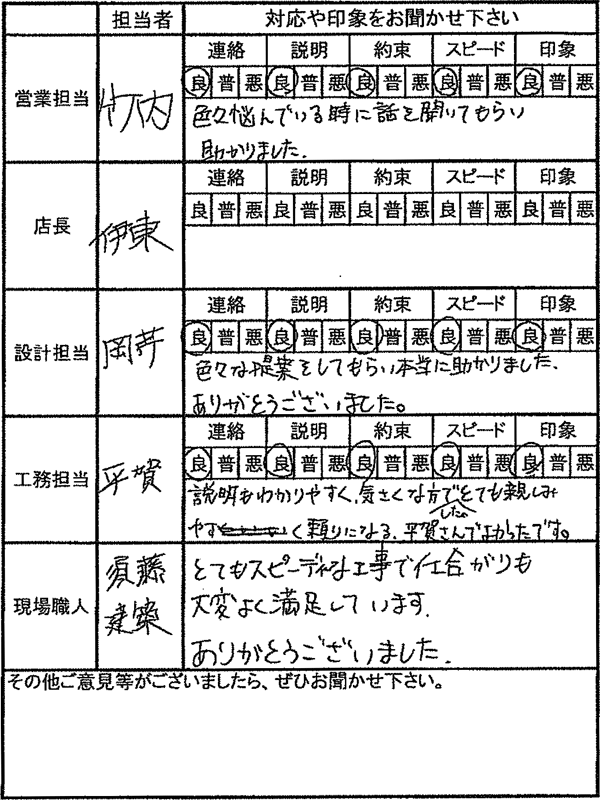 担当者 対応や印象をお聞かせ下さい
営業担当 竹内
連絡 説明 約束 スピード 印象
良 普 悪 良 普 悪 良 普 悪 良 普 悪 良 普 悪
色々悩んでいる時に話を聞いてもらい
助かりました.
店長 伊東
連絡 説明 約束 スピード 印象
良 普 悪 良 普 悪 良 普 悪 良 普 悪 良 普 悪
設計担当 岡芹
連絡 説明 約束 スピード 印象
良 普 悪 良 普 悪 良 普 悪 良 普 悪 良 普 悪
色々な提案をしてもらい本当に助かりました.
ありがとうございました。
工務担当 平賀
連絡 説明 約束 スピード 印象
良 普 悪 良 普 悪 良 普 悪 良 普 悪 良 普 悪
説明もわかりやすく、気さくな方でとても親しみ
した。
やすく頼りになる、平賀さんでよかったです。
現場職人 須藤
建築
とてもスピーディな工事で仕合がりも
大変よく満足しています.
ありがとうございました.
その他ご意見等がございましたら、ぜひお聞かせ下さい。